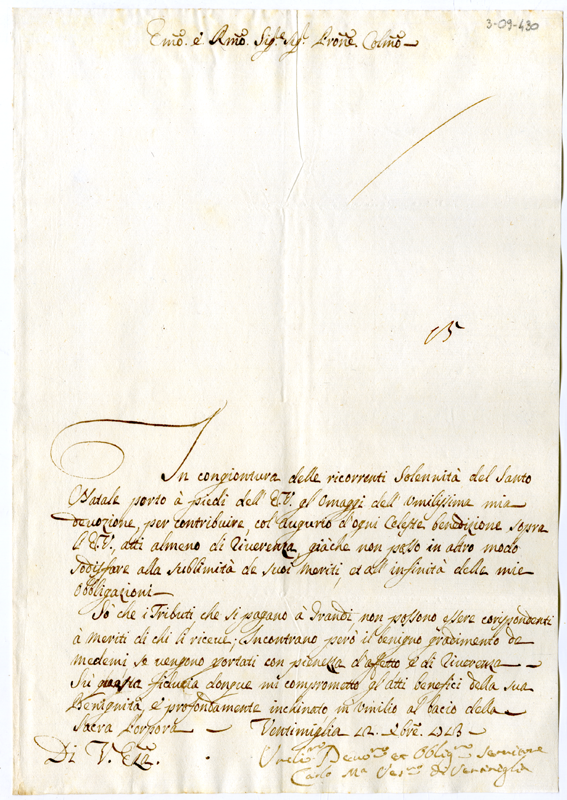 3-09-430
Emo. è Rmo. Sigre. Sigr. Prone. Colmo.
In congiontura delle ricorrenti Solennità del Santo
Natale porto à piedi dell' E.V. gl'Omaggi dell' Umilissima mia
devozione, per contribuire, col Augurio d'ogni Celeste benedizione sopra
l'E.V., atti almeno di Riverenza, giàche non posso in altro modo
sodisfare alla sublimità de suoi meriti, et all' infinità delle mie
obbligazioni
Sò che i Tributi che si pagano à Grandi non possono essere corispondenti
à meriti di chi li riceve; Incontrano però il benigno gradimento de
medemi se vengono portati con pienezza d'affetto è di Riverenza
Sù questa fiducia donque mi comprometto gl'atti benefici della sua
Benignità, è profondamente inchinato m'umilio al bacio della
Sacra Porpora Ventimiglia 12. Xbre.
Di V. Emza. Umilmo Devmo et Obbligmo Servitore
Carlo Ma Vesco di Ventimiglia